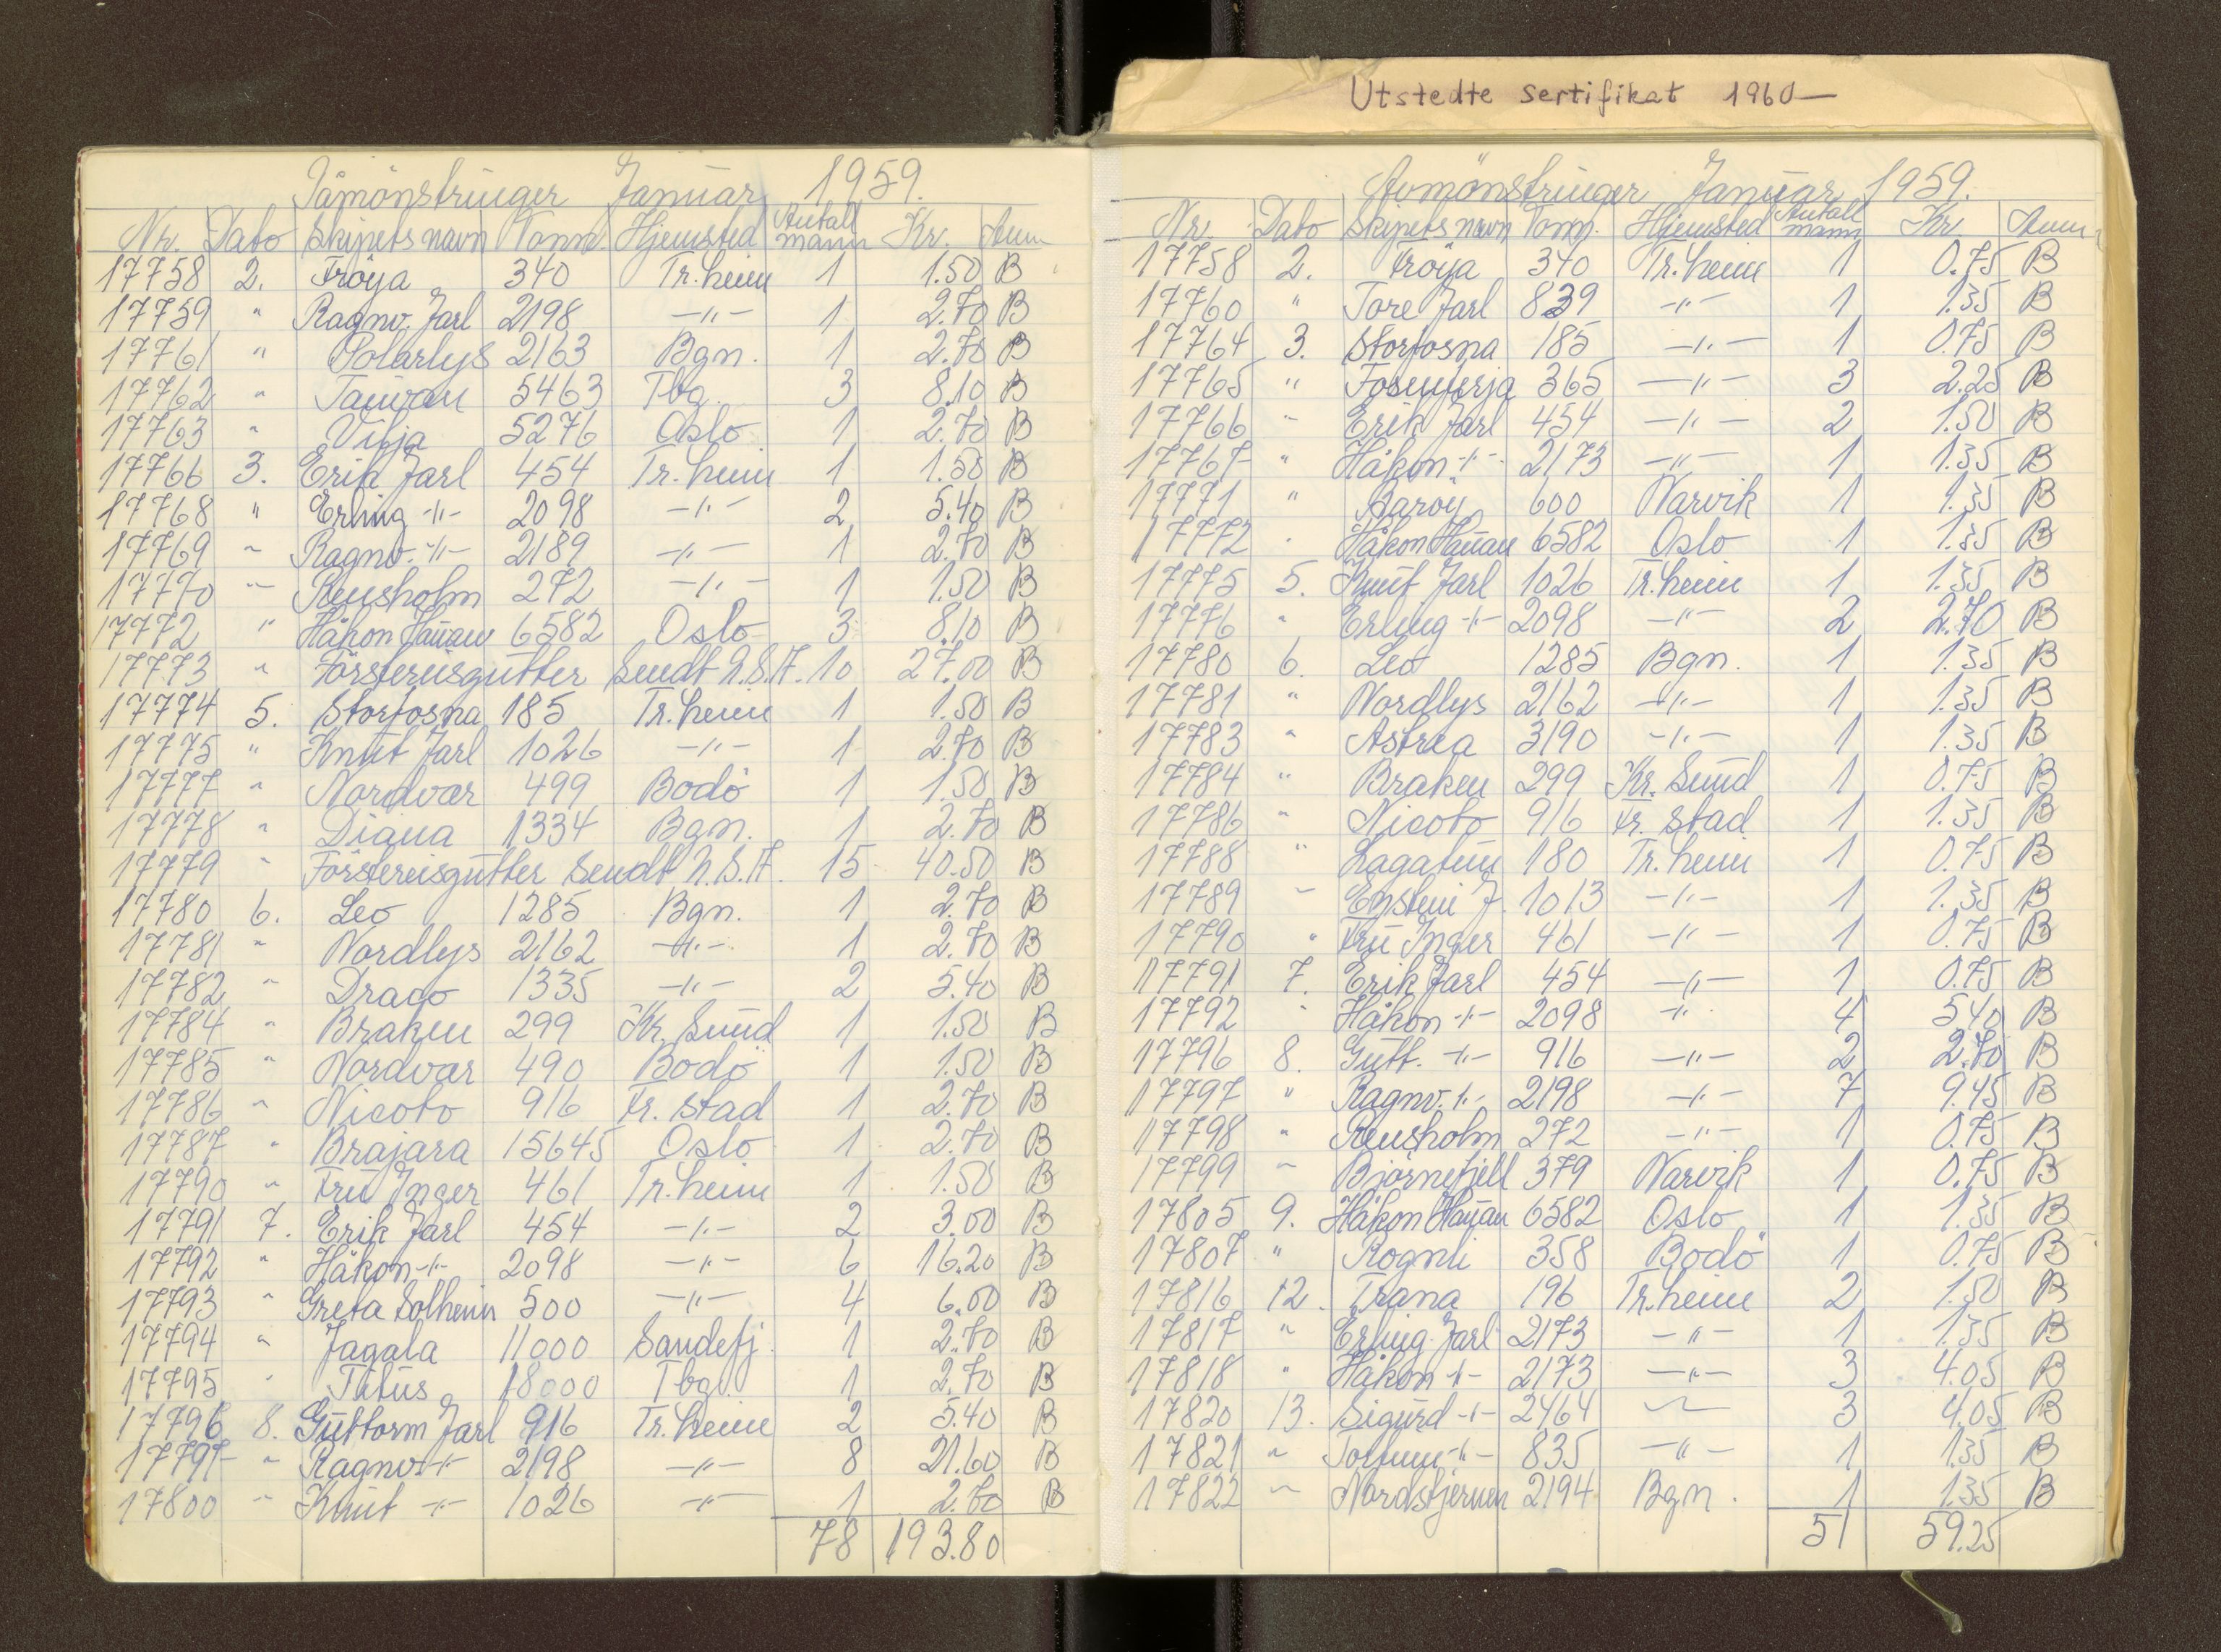 Utstedte sertifikat 1960—
Påmönstringer Januar 1959.
Nr. Dato Skipets navn Tonn. Hjemsted Antall mann Kr. Anm
17758 2. Fröya 340 Tr.heim 1 1.50 B
17759 " Ragnv. Jarl 2198 -"- 1 2.70 B
17761 " Polarlys 2163 Bgn. 1 2.70 B
17762 " Taiwan 5463 Tbg. 3 8.10 B
17763 " Vilja 5276 Oslo 1 2.70 B
17766 3. Erik Jarl 454 Tr.heim 1 1.50 B
17768 " Erling -"- 2098 -"- 2 5.40 B
17769 " Ragnv. -"- 2189 -"- 1 2.70 B
17770 " Rensholm 272 -"- 1 1.50 B
17772 " Håkon Hauan 6582 Oslo 3 8.10 B
17773 " Förstereisgutter Sendt N.S.F. 10 27.00 B
17774 5. Storfosna 185 Tr.heim 1 1.50 B
17775 " Knut Jarl 1026 -"- 1 2.70 B
17777 " Nordvar 499 Bodö 1 1.50 B
17778 " Diana 1334 Bgn. 1 2.70 B
17779 " Förstereisgutter Sendt N.S.F. 15 40.50 B
17780 6. Leo 1285 Bgn. 1 2.70 B
17781 " Nordlys 2162 -"- 1 2.70 B
17782 " Drago 1335 -"- 2 5.40 B
17784 " Braken 299 Kr. Sund 1 1.50 B
17785 " Nordvar 490 Bodö 1 1.50 B
17786 " Nicoto 916 Fr. stad 1 2.70 B
17787 " Brajara 15645 Oslo 1 2.70 B
17790 " Fru Inger 461 Tr.heim 1 1.50 B
17791 7. Erik Jarl 454 -"- 2 3.00 B
17792 " Håkon -"- 2098 -"- 6 16.20 B
17793 " Greta Solheim 500 -"- 4 6.00 B
17794 " Jagala 11000 Sandefj. 1 2.70 B
17795 " Titus 18000 Tbg. 1 2.70 B
17796 8. Guttorm Jarl 916 Tr.heim 2 5.40 B
17797 " Ragnv. -"- 2198 -"- 8 21.60 B
17800 " Knut -"- 1026 -"- 1 2.70 B
78 193.80
Avmönstringer Januar 1959.
Nr. Dato Skipets navn Tonn. Hjemsted Antall mann Kr. Anm
17758 2. Fröya 340 Tr.heim 1 0.75 B
17760 " Tore Jarl 839 -"- 1 1.35 B
17764 3. Storfosna 185 -"- 1 0.75 B
17765 " Fosenferja 365 -"- 3 2.25 B
17766 " Erik Jarl 454 -"- 2 1.50 B
17767 " Håkon -"- 2173 -"- 1 1.35 B
17771 " Baröy 600 Narvik 1 1.35 B
17772 " Håkon Hauan 6582 Oslo 1 1.35 B
17775 5. Knut Jarl 1026 Tr.heim 1 1.35 B
17776 " Erling -"- 2098 -"- 2 2.70 B
17780 6. Leo 1285 Bgn. 1 1.35 B
17781 " Nordlys 2162 -"- 1 1.35 B
17783 " Astrea 3190 -"- 1 1.35 B
17784 " Braken 299 Kr. Sund 1 0.75 B
17786 " Nicoto 916 Fr. stad 1 1.35 B
17788 " Lagatun 180 Tr.heim 1 0.75 B
17789 " Eystein J. 1013 -"- 1 1.35 B
17790 " Fru Inger 461 -"- 1 0.75 B
17791 7. Erik Jarl 454 -"- 1 0.75 B
17792 " Håkon -"- 2098 -"- 4 5.40 B
17796 8. Gutt. -"- 916 -"- 2 2.70 B
17797 " Ragnv. -"- 2198 -"- 7 9.45 B
17798 " Rensholm 272 -"- 1 0.75 B
17799 " Björnefjell 379 Narvik 1 0.75 B
17805 9. Håkon Hauan 6582 Oslo 1 1.35 B
17807 " Rognli 358 Bodö 1 0.75 B
17816 12. Trana 196 Tr.heim 2 1.50 B
17817 " Erling Jarl 2173 -"- 1 1.35 B
17818 " Håkon -"- 2173 -"- 3 4.05 B
17820 13. Sigurd -"- 2464 -"- 3 4.05 B
17821 " Tolfinn -"- 835 -"- 1 1.35 B
17822 " Nordstjernen 2194 Bgn. 1 1.35 B
51 59.25